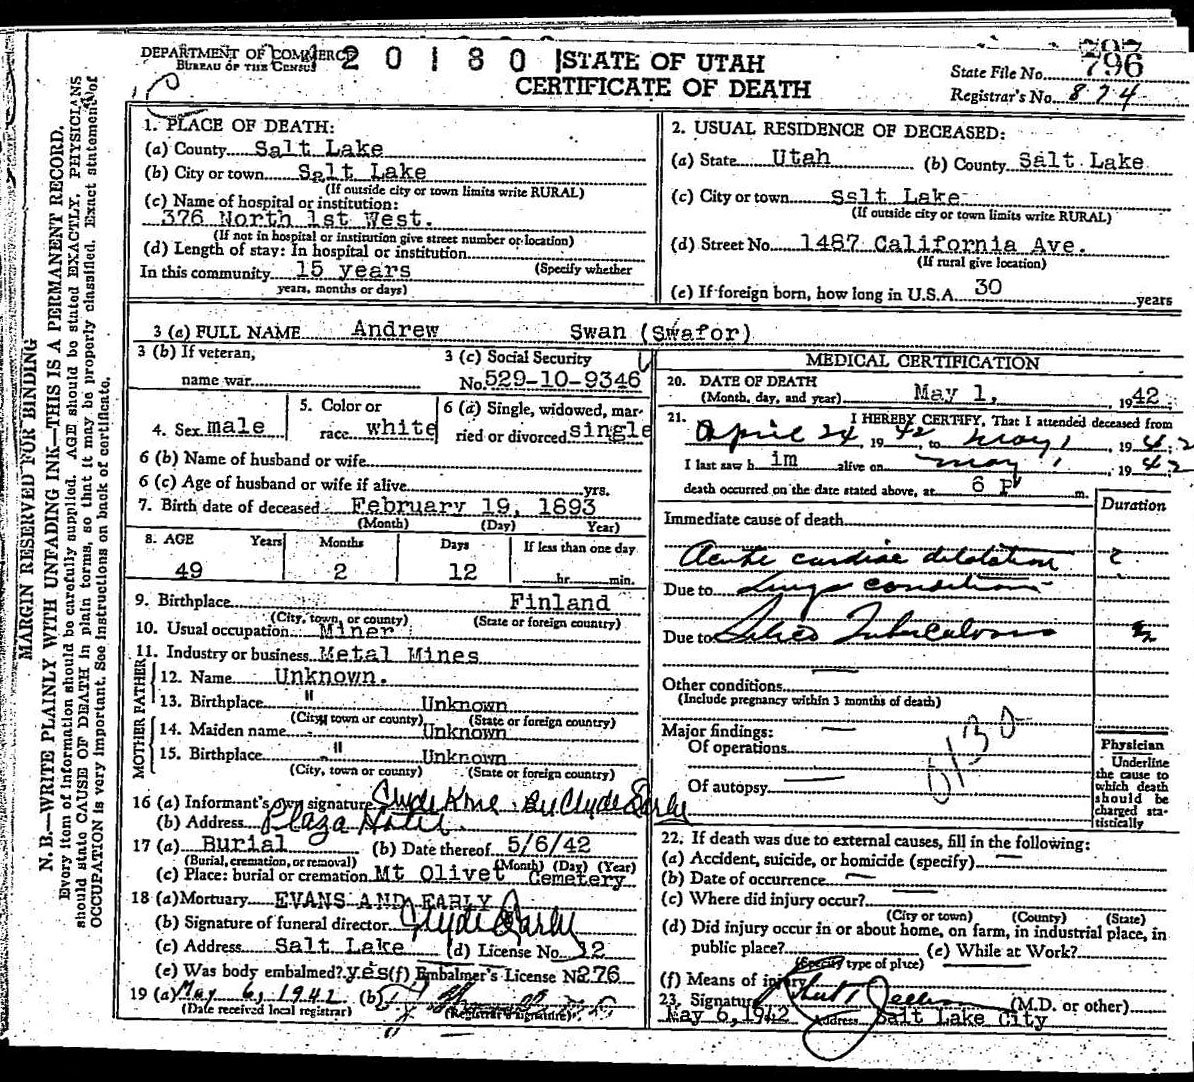 DEPARTMENT OF COMMERCE
BUREAU OF THE CENSUS
20180
STATE OF UTAH
CERTIFICATE OF DEATH
State File No. 796
Registrar's No. 874
MARGIN RESERVED FOR BINDING
N. B.—WRITE PLAINLY WITH UNFADING INK—THIS IS A PERMANENT RECORD.
Every item of information should be carefully supplied. AGE should be stated EXACTLY. PHYSICIANS
should state CAUSE OF DEATH in plain terms, so that it may be properly classified. Exact statement of
OCCUPATION is very important. See instructions on back of certificate.
1. PLACE OF DEATH:
(a) County Salt Lake
(b) City or town Salt Lake
(If outside city or town limits write RURAL)
(c) Name of hospital or institution:
376 North 1st West.
(If not in hospital or institution give street number or location)
(d) Length of stay: In hospital or institution
In this community 15 years (Specify whether
years, months or days)
2. USUAL RESIDENCE OF DECEASED:
(a) State Utah (b) County Salt Lake
(c) City or town Sslt Lake
(If outside city or town limits write RURAL)
(d) Street No. 1487 California Ave.
(If rural give location)
(e) If foreign born, how long in U.S.A. 30 years
3 (a) FULL NAME Andrew Swan (Swafor)
3 (b) If veteran,
name war
3 (c) Social Security
No. 529-10-9346
4. Sex male
5. Color or
race white
6 (a) Single, widowed, mar-
ried or divorced single
6 (b) Name of husband or wife
6 (c) Age of husband or wife if alive yrs.
7. Birth date of deceased February 19, 1893
(Month) (Day) Year)
8. AGE Years Months Days If less than one day
49 2 12 hr. min.
9. Birthplace Finland
(City, town, or county) (State or foreign country)
10. Usual occupation Miner
11. Industry or business Metal Mines
FATHER
12. Name Unknown.
13. Birthplace " Unknown
(City, town or county) (State or foreign country)
MOTHER
14. Maiden name " Unknown
15. Birthplace " Unknown
(City, town or county) (State or foreign country)
16 (a) Informant's own signature Clyde By Clyde Early
(b) Address Plaza Hotel.
17 (a) Burial (b) Date thereof 5/6/42
(Burial, cremation, or removal) (Month) (Day) (Year)
(c) Place: burial or cremation Mt Olivet Cemetery
18 (a) Mortuary EVANS AND EARLY
(b) Signature of funeral director Clyde Early
(c) Address Salt Lake (d) License No. 12
(e) Was body embalmed? yes (f) Embalmer's License No 276
19 (a) May 6, 1942 (b)
(Date received local registrar) (Registrar's signature)
MEDICAL CERTIFICATION
20. DATE OF DEATH
(Month, day, and year) May 1, 1942
21. I HEREBY CERTIFY, That I attended deceased from
April 24, 1942 to May 1, 1942
I last saw him alive on May 1, 1942
death occurred on the date stated above, at 6 P m.
Duration
Immediate cause of death
Acute cardiac dilatation
Due to Lungs condition
Due to Silico Tuberculosis
Other conditions
(Include pregnancy within 3 months of death)
Major findings:
Of operations
Of autopsy
0130
Physician
Underline
the cause to
which death
should be
charged sta-
tistically
22. If death was due to external causes, fill in the following:
(a) Accident, suicide, or homicide (specify)
(b) Date of occurrence
(c) Where did injury occur?
(City or town) (County) (State)
(d) Did injury occur in or about home, on farm, in industrial place, in
public place? (e) While at Work?
(Specify type of place)
(f) Means of injury
23. Signature (M.D. or other)
May 6, 1942 Address Salt Lake City